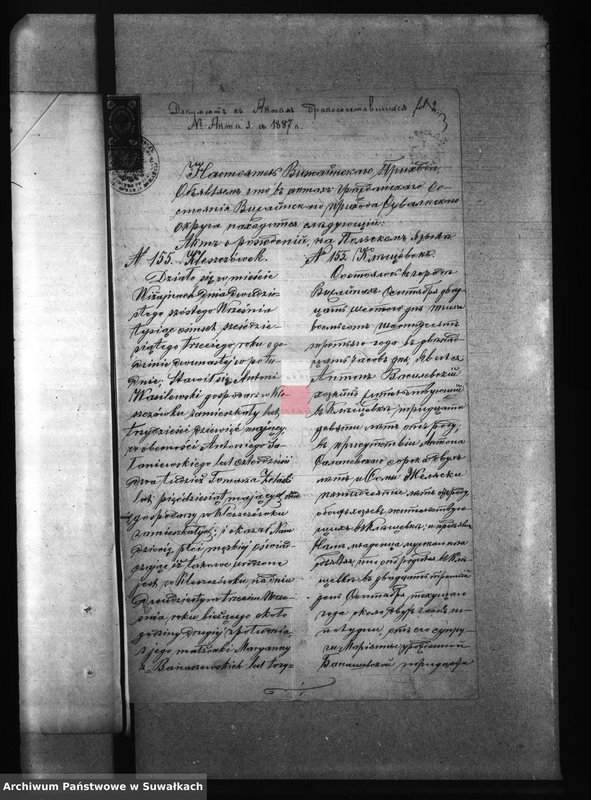 Документъ къ Актамъ бракосочетавшихся
№ Акта 3. с 1887 г.
Настоятель Вижайнскаго Прихода
Объявляетъ что въ актахъ гражданскаго Со-
стоянія Вижайнскаго прихода Сувалкскаго
Округа находится слѣдующій:
Актъ о рожденій, на Польскомъ Языкѣ
№ 155. Kleszczówek.
Działo się w mieście
Wiżajnach dnia dwudzie-
stego szóstego Września
tysiąc ośmset sześćdzie-
siątego trzeciego roku o go-
dzinie dwunastej w połu-
dnie. Stawił się Antoni
Wasilewski gospodarz w Kle-
szczówku zamieszkały lat
trzydzieści dziewięć mający
w obecności Antoniego Sa-
laniewskiego lat czterdzieści
dwa tudzież Tomasza
lat pięćdziesiąt mających
gospodarzy w Kleszczówku
zamieszkałych; i okazał Nam
Dziecię płci męskiej oświad-
czając iż takowe urodzone
jest w Kleszczówku, na dniu
Dwudziestym trzecim Wrze-
śnia roku bieżącego około
godziny drugiej z południa,
z jego małżonki Maryanny
z Banaszewskich lat trzy-
№ 155. Клещовекъ.
Состоялось въ городѣ
Вижайнахъ Сентября двад-
цать шестого дня тысяча
восемьсотъ шестьдесятъ
третьяго года въ двѣнад-
цать часовъ дня, Явился
Антонъ Василевскій
хозяинъ жительствующій
въ Клещовкѣ, тридцати
девяти лѣтъ отъ роду,
въ присутствіи Антона
Саланевскаго сорока двухъ
лѣтъ и Фомы
пятидесяти лѣтъ отъ роду
обоихъ хозяевъ жительствую-
щихъ въ Клещовкѣ, и предъявилъ
Намъ младенца мужескаго пола
объявляя, что онъ родился въ Кле-
щовкѣ въ двадцать третьяго
дня Сентября текущаго
года около двухъ часовъ по
полудни, отъ его супру-
ги Маріанны урожденной
Банашевской тридцати
Archiwum Państwowe w Suwałkach